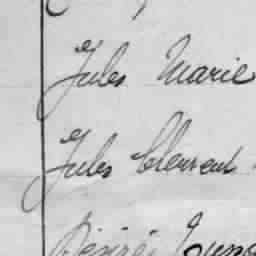 Jules Marie
Jules Clement
Désiré